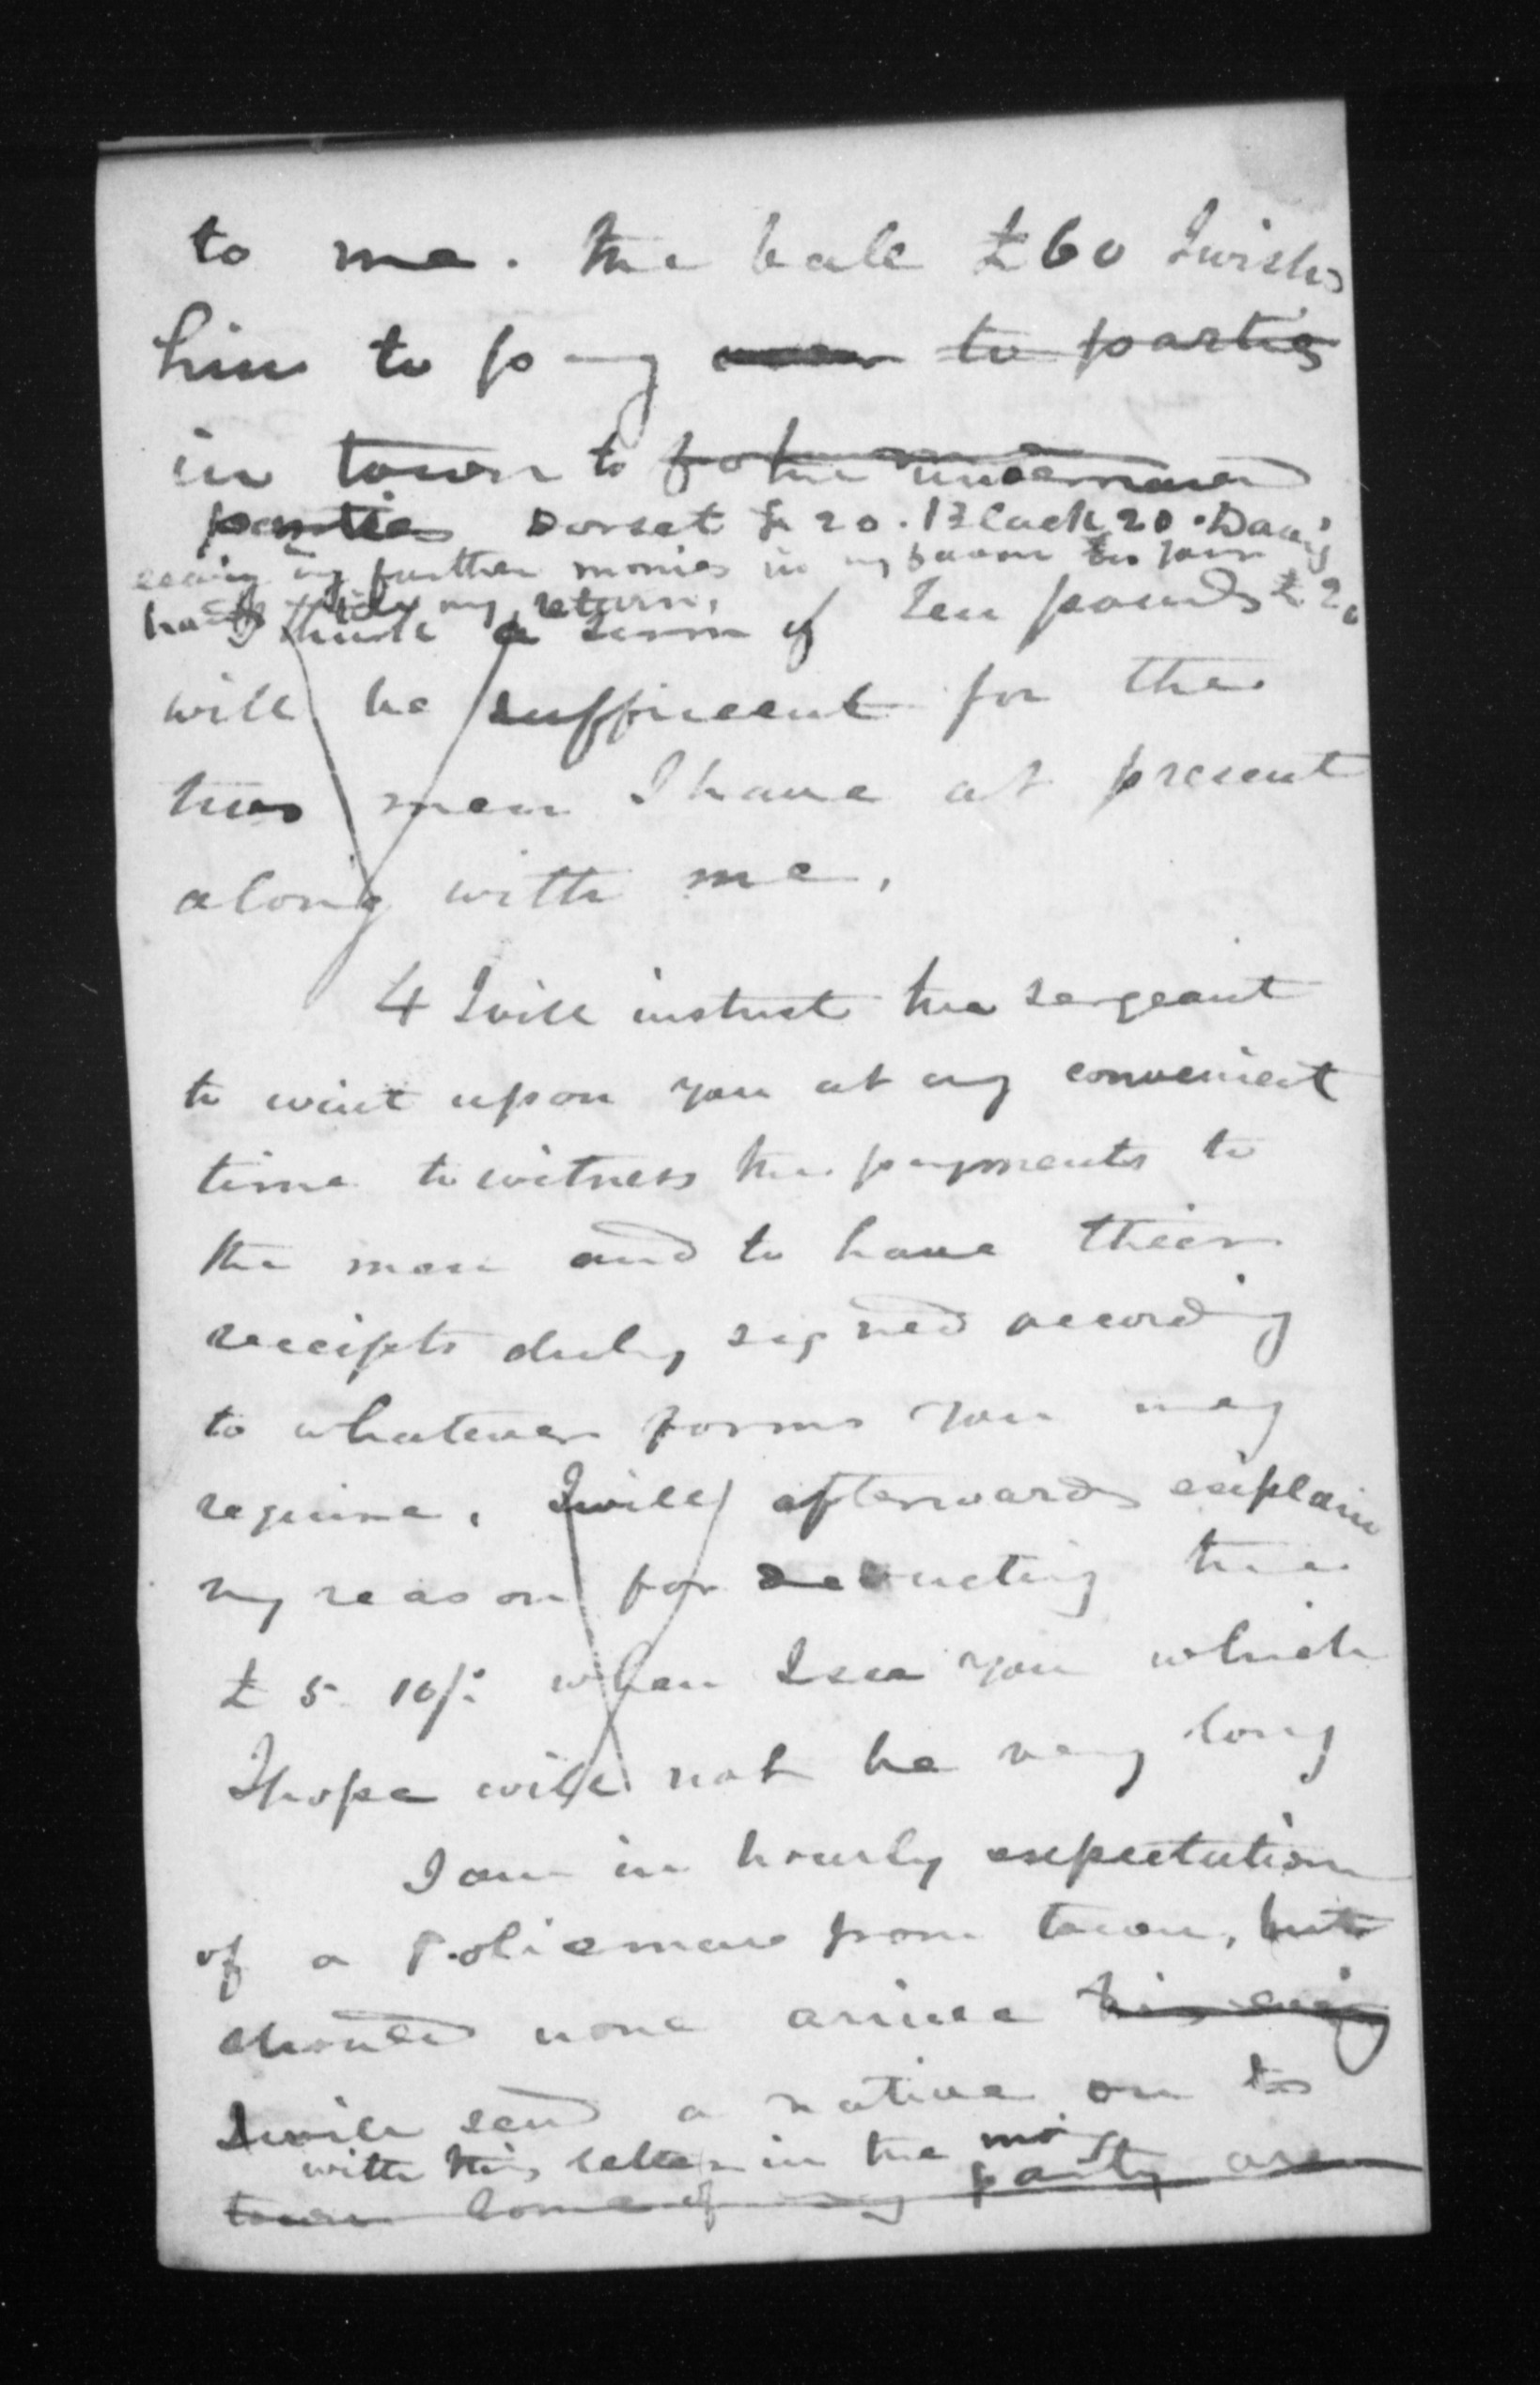 to me. the bale £60 I wish
him to pay to parties
in town to undernamed
parties Dorset £ 20. Black 20. Davis
any further monies in my favor in your
hands my return. £ 20
I think a sum of Ten pounds
will be sufficeent for the
two men I have at present
along with me.
4 I will instruct the sergeant
to wait upon you at any convenient
time to witness the payments to
the men and to have their
receipts duly signed according
to whatever forms you may
require. I will afterwards explain
my reason for deducting the
£ 5. 10/: when I see you which
I hope will not be very long
I am in hourly expectation
of a Policeman from town, but
should none arrive this evig
I will send a native on to
with this letter in the morg
town Some of my party are